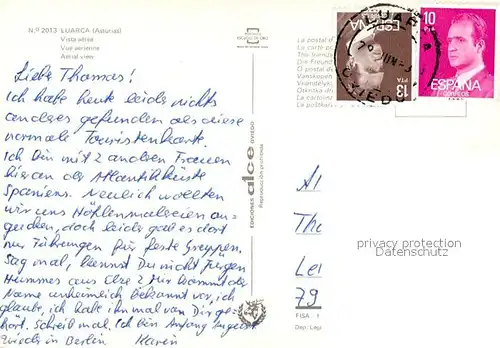 N.º 2013 LUARCA (Asturias)
Vista aérea
Vue aérienne
Aerial view
Liebe Thomas!
Ich habe heute leider nichts
anderes gefunden als diese
normale Touristenkarte.
Ich bin mit 2 anderen Frauen
hier an der Atlantikküste
Spaniens. Neulich wollten
wir uns Höhlenmalereien an-
gucken, doch leider gab es dort
nur Führungen für feste Gruppen.
Sag mal, kennst Du nicht Jürgen
Hummer aus Mir kommt der
Name unheimlich bekannt vor, ich
glaube, ich habe ihn mal von Dir ge-
hört. Schreib mal. Ich bin Anfang August
wieder in Berlin Karin
EDICIONES alce OVIEDO
Reproducción prohibida
La postal d
La carte po
This friends
Die Freund
O postal do
La cartolina
La poštèk
13 PTA
ESPAÑA
LUARCA
OVIEDO
10
ESPAÑA
CORREOS
Al
Tho
Lei
79
privacy protection
Datenschutz
FISA
Dep. Leg.